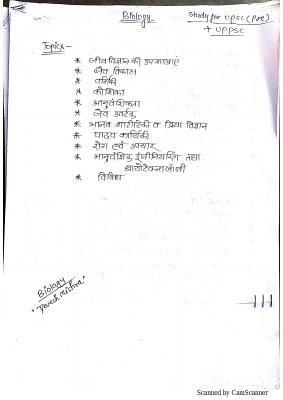 Biology.
Study for UPSC (Pre)
+ UPPSC
Topics -
* जीव विज्ञान की उपशाखाएं
* जैव विकास
* वर्गिकी
* कोशिका
* आनुवंशिकता
* जैव उर्वरक
* मानव शारीरिकी व क्रिया विज्ञान
* पादप कार्यिकी
* रोग एवं उपचार
* आनुवंशिक इंजीनियरिंग तथा
बायोटेक्नोलॉजी
* विविध
Biology
Scanned by CamScanner